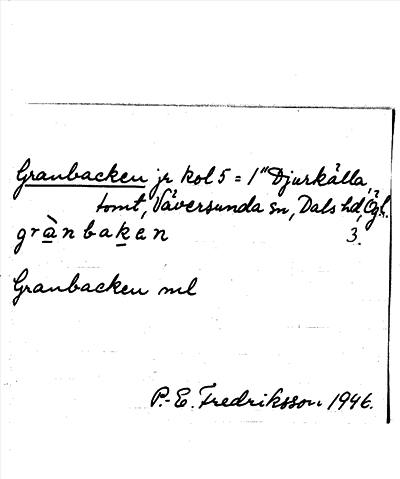 Granbacken jr kol 5 = 1" Djurkälla
tomt, Väversunda sn, Dals hd, Ögl.
grànbaken 3.
Granbacken ml
P.-E. Fredriksson 1946.